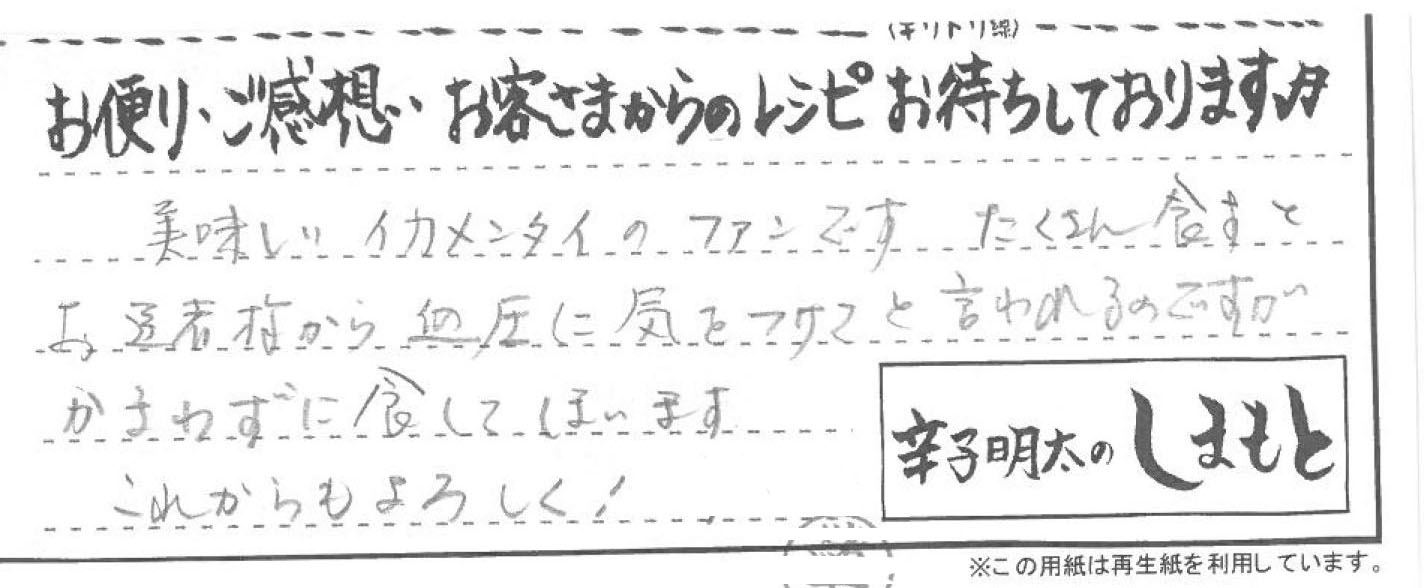 (キリトリ線)
お便り・ご感想・お客さまからのレシピお待ちしております♪
美味しい イカメンタイ の ファンです たくさん 食すと
お医者様から 血圧に 気をつけてと 言われるのですが
かまわずに 食してしまいます
これからもよろしく!
辛子明太のしまもと
※この用紙は再生紙を利用しています。